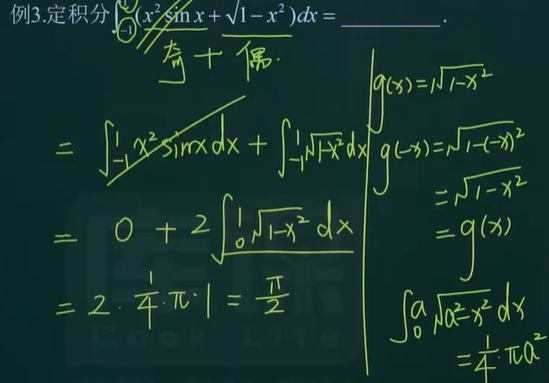 例3.定积分∫₋₁¹(x² sin x + √(1−x²))dx = ________.
奇 + 偶.
= ∫₋₁¹ x² sinx dx + ∫₋₁¹ √(1-x²) dx
= 0 + 2∫₀¹ √(1-x²) dx
= 2 · 1/4 · π · 1 = π/2
g(x) = √(1-x²)
g(-x) = √(1-(-x)²)
= √(1-x²)
= g(x)
∫₀ᵃ √(a²-x²) dx
= 1/4 · πa²